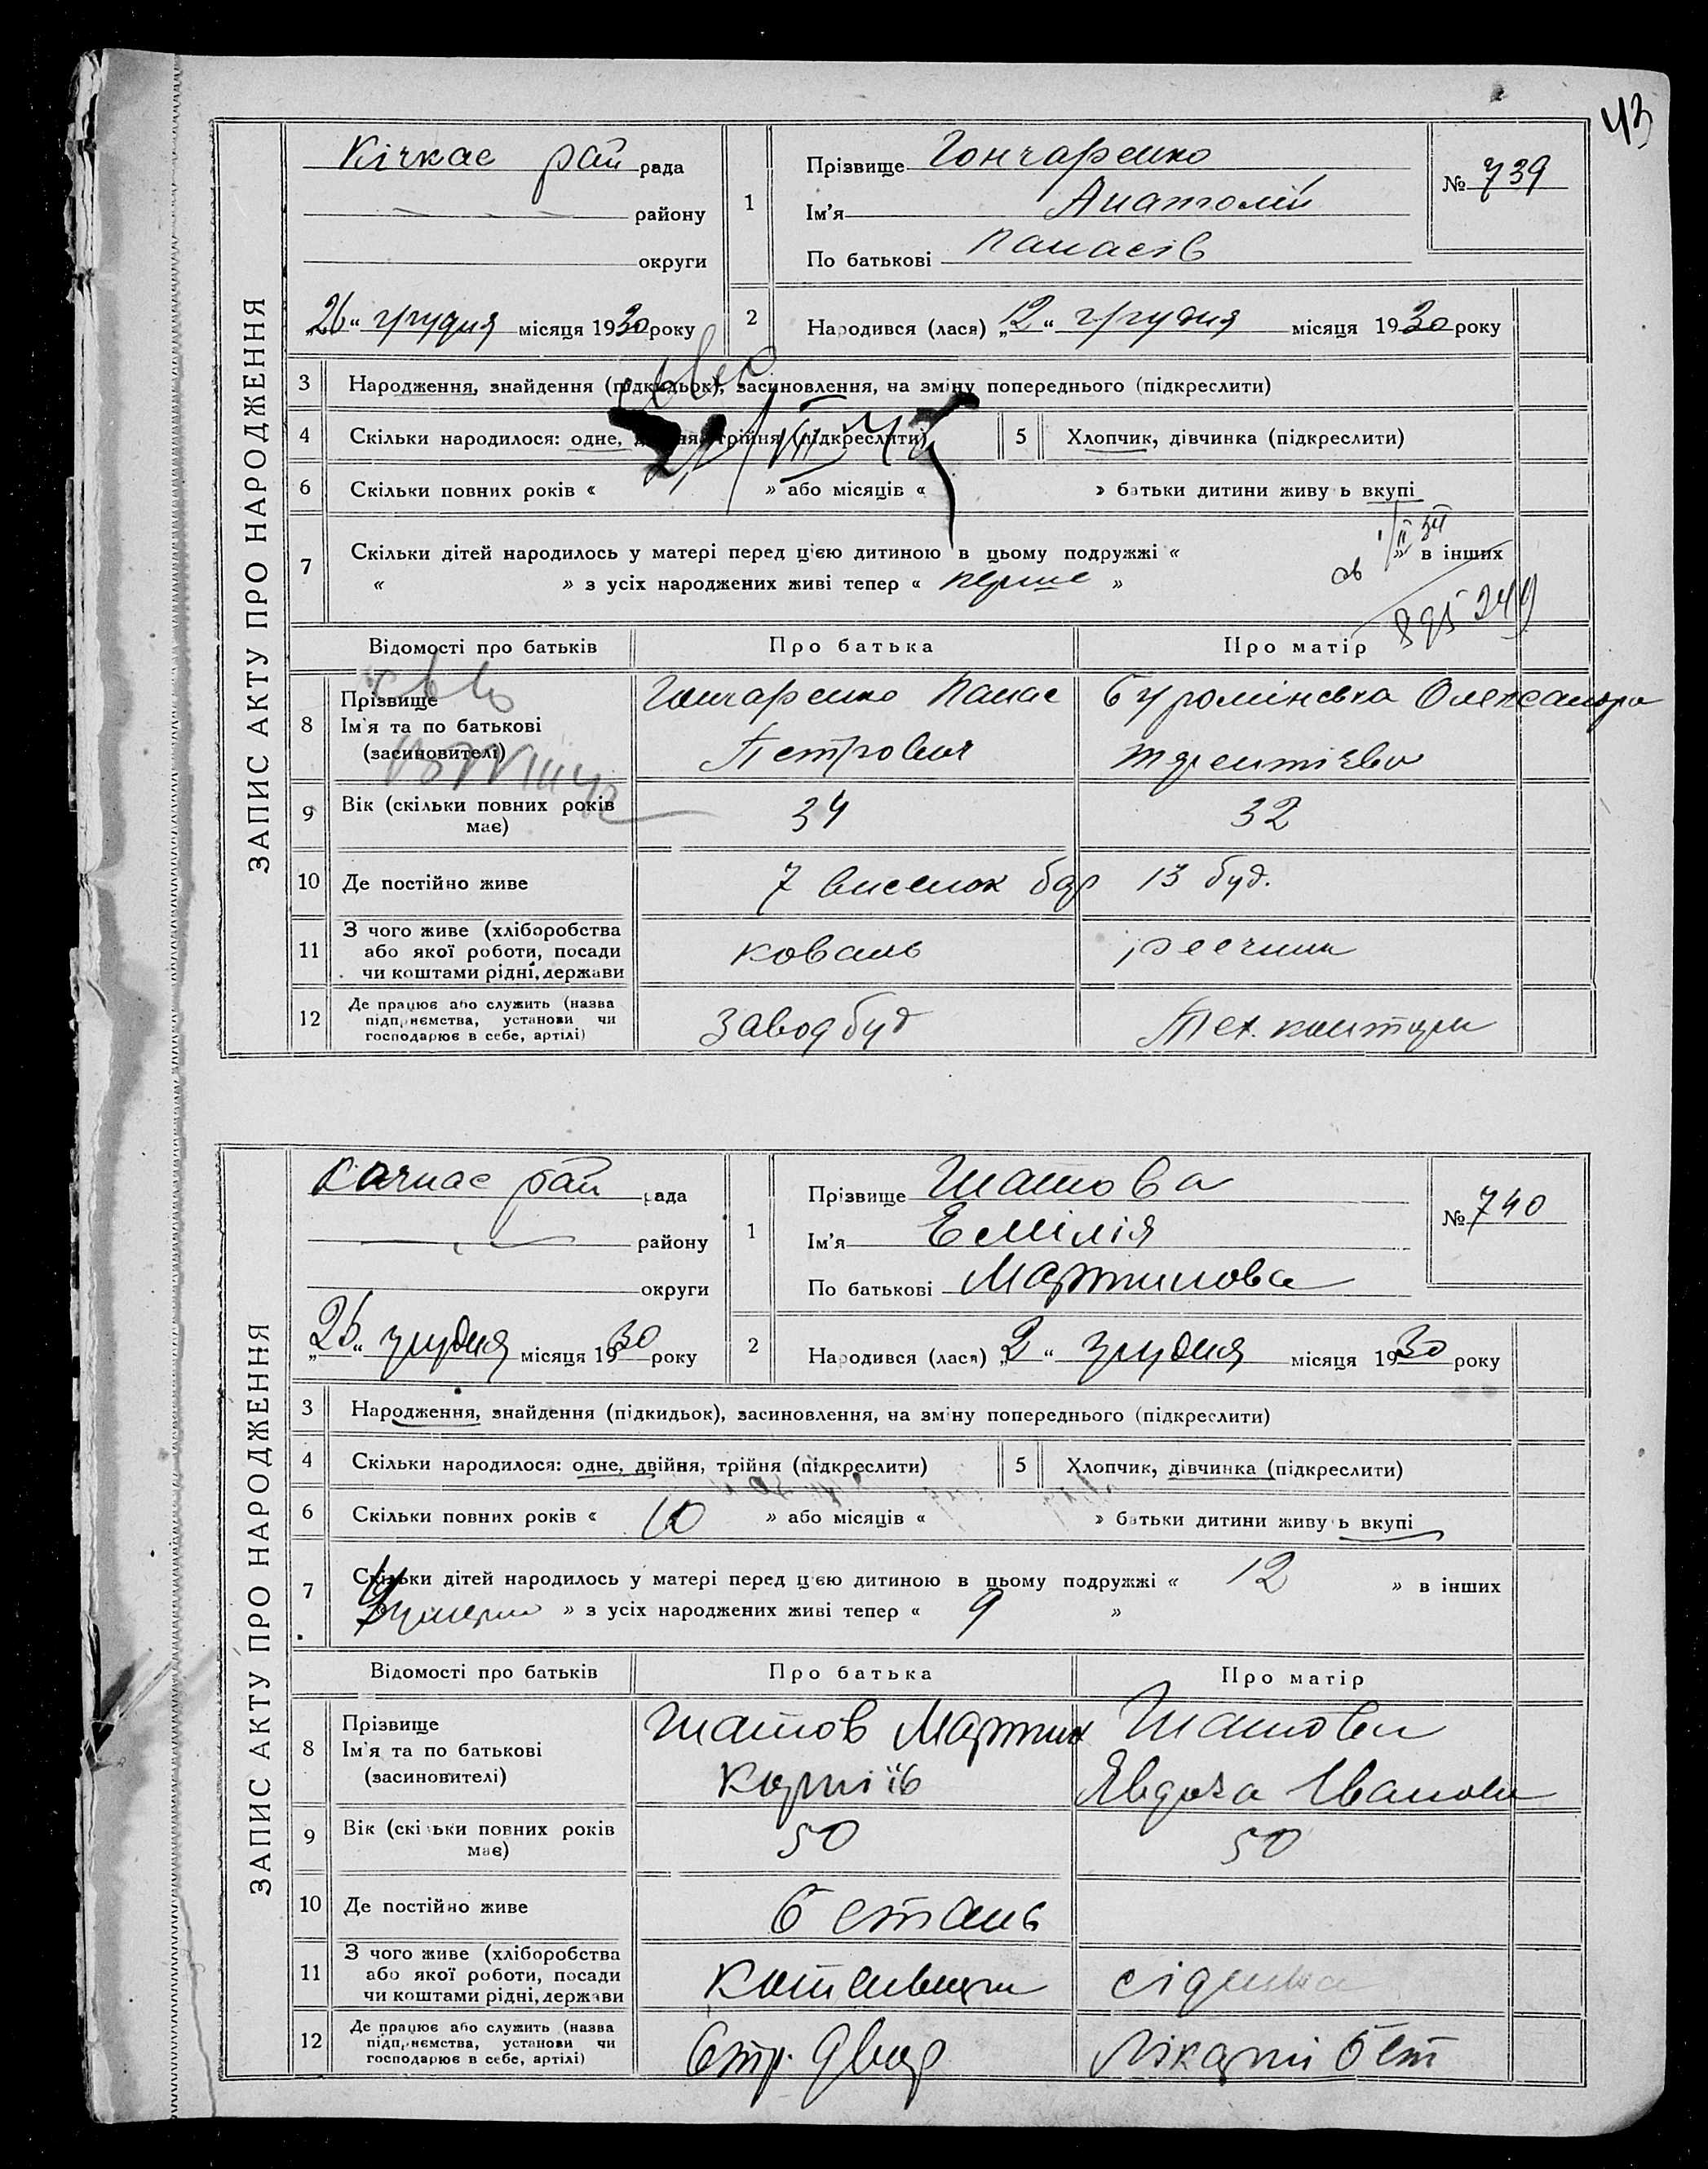 43
ЗАПИС АКТУ ПРО НАРОДЖЕННЯ
Кічкас рай рада
району
округи
„26“ грудня місяця 1930 року
1
Прізвище Гончаренко
Ім'я Анатолій
По батькові Панасів
№ 739
2 Народився (лася) „12“ грудня місяця 1930 року
3 Народження, знайдення (підкидьок), засиновлення, на зміну попереднього (підкреслити)
4 Скільки народилося: одне, двійня, трійня (підкреслити) 5 Хлопчик, дівчинка (підкреслити)
6 Скільки повних років « » або місяців « » батьки дитини живуть вкупі
7 Скільки дітей народилось у матері перед цією дитиною в цьому подружжі « » в інших
« » з усіх народжених живі тепер « перше »
Відомості про батьків Про батька Про матір
8 Прізвище Ім'я та по батькові (засиновителі) Гончаренко Панас Петрович Буромінська Олександра Терентієва
9 Вік (скільки повних років має) 34 32
10 Де постійно живе 7 виселок бар 13 буд.
11 З чого живе (хліборобства або якої роботи, посади чи коштами рідні, держави коваль
12 Де працює або служить (назва підприємства, установи чи господарює в себе, артілі) Заводбуд Тех. контори
ЗАПИС АКТУ ПРО НАРОДЖЕННЯ
Кічкас рай рада
району
округи
„26“ грудня місяця 1930 року
1
Прізвище Шатова
Ім'я Емілія
По батькові Мартинова
№ 740
2 Народився (лася) „2“ грудня місяця 1930 року
3 Народження, знайдення (підкидьок), засиновлення, на зміну попереднього (підкреслити)
4 Скільки народилося: одне, двійня, трійня (підкреслити) 5 Хлопчик, дівчинка (підкреслити)
6 Скільки повних років « 10 » або місяців « » батьки дитини живуть вкупі
7 Скільки дітей народилось у матері перед цією дитиною в цьому подружжі « 12 » в інших
» з усіх народжених живі тепер « 9 »
Відомості про батьків Про батька Про матір
8 Прізвище Ім'я та по батькові (засиновителі) Шатов Мартин Корніїв Шатова Явдоха Іванова
9 Вік (скільки повних років має) 50 50
10 Де постійно живе
11 З чого живе (хліборобства або якої роботи, посади чи коштами рідні, держави сіделка
12 Де працює або служить (назва підприємства, установи чи господарює в себе, артілі)